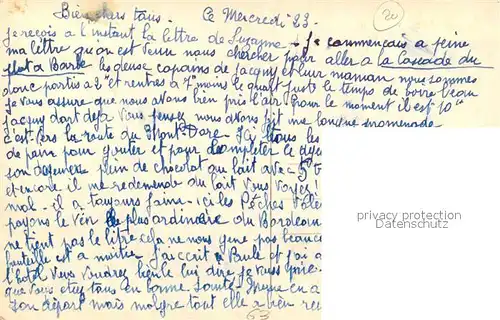 Bien chers tous. Ce Mercredi 23.
je reçois à l'instant la lettre de Suzanne. Je commençais à peine
ma lettre qu'on est venu nous chercher pour aller à la Cascade du
Plat à Barbe les deux copains de Jacquy et leur maman nous sommes
donc partis à 2H et rentrés à 7H moins le quart juste le temps de boire l'eau
Je vous assure que nous avons bien pris l'air. Pour le moment il est 10H
Jacquy dort déjà vous pensez nous avons fait une longue promenade
c'est vers la route du Mont Dore. J'ai tous les
de pain pour gouter et pour compléter le
son déjeuner plein de chocolat au lait avec 5
et encore il me redemande du lait vous voyez
mal - il a toujours faim - ici les Pêches
payons le vin le plus ordinaire du Bordeau
ne tient pas le litre cela ne nous gène pas
bouteille est a moitié J'ai écrit à Paule et j'ai
l'hotel
que vous étiez tous en bonne santé Meme en a
son départ mais malgré tout elle a bien
63
20
privacy protection
www.ansichtskarten-center.de